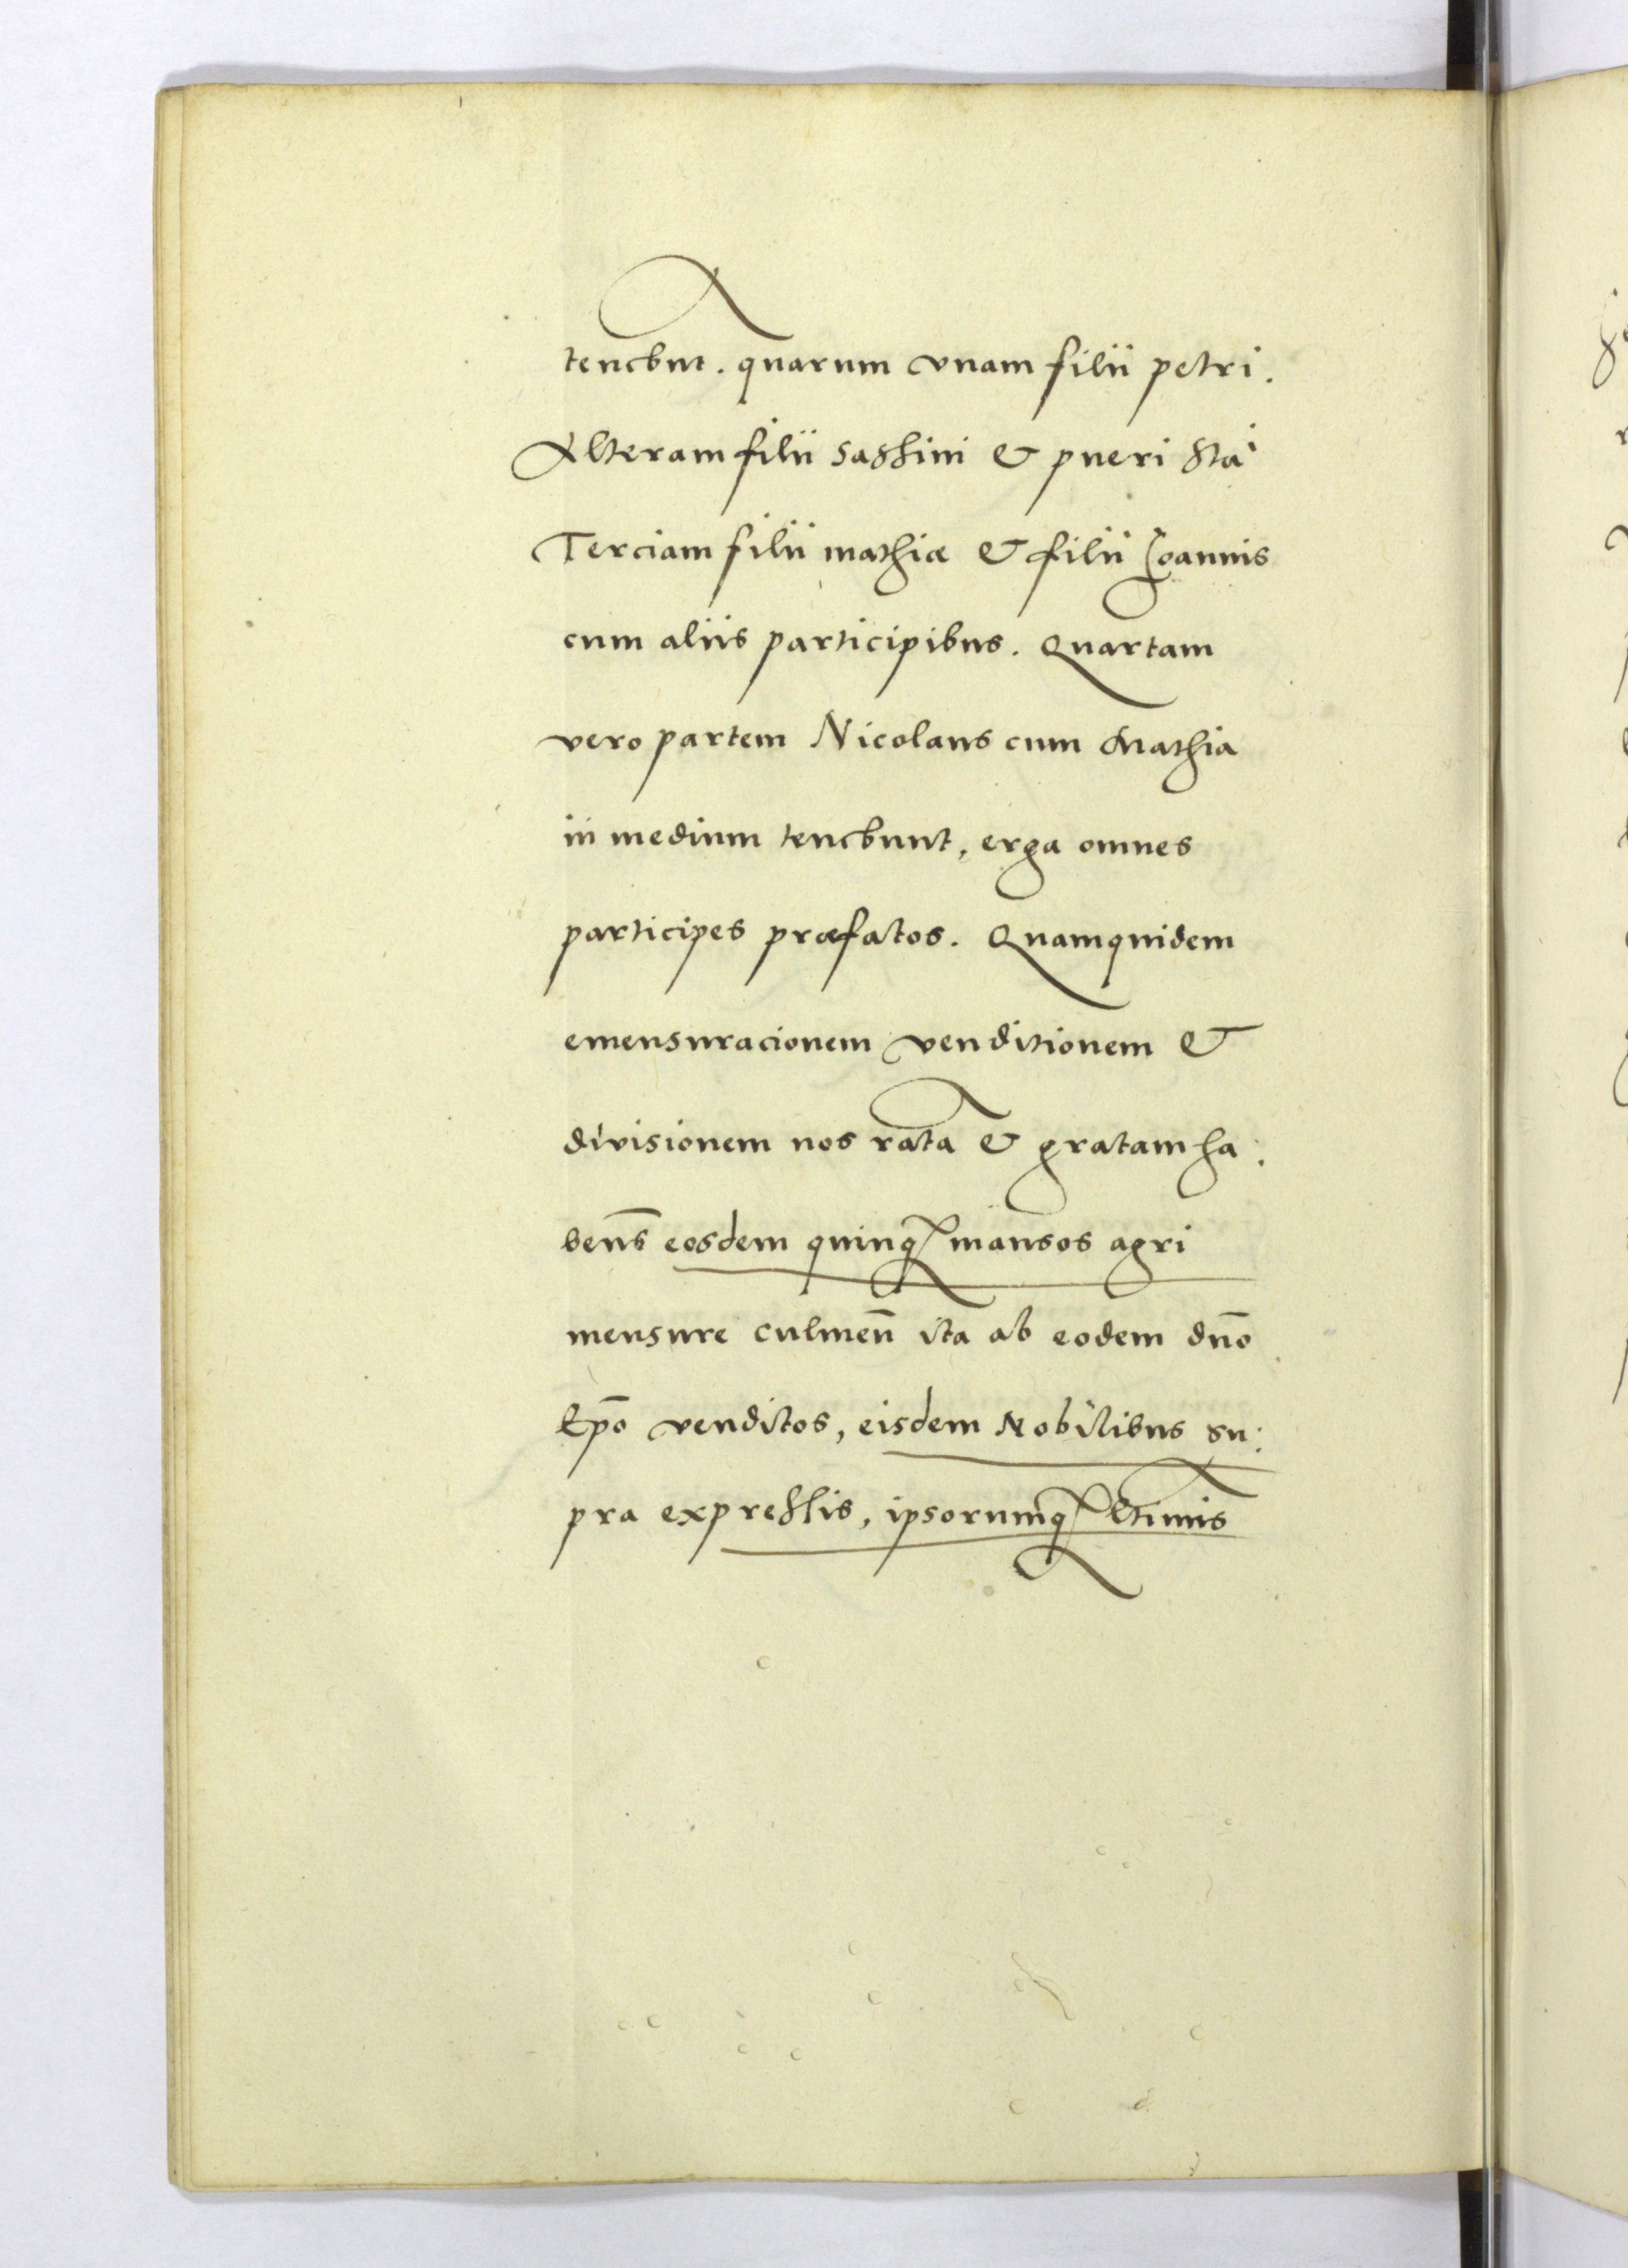 tenebut. quarum vnam filii petri.
Alteram filii sassini & pueri Sta
Terciam filii mathiæ & filii Joannis
cum aliis participibus. Quartam
vero partem Nicolaus cum Mathia
in medium tenebunt, erga omnes
participes præfatos. Quamquidem
emensuracionem venditionem &
divisionem nos ratā & gratam ha:
bens̄ eosdem quinq₃ mansos agri
mensure culmen̄ ita ab eodem dn̄o
Ep̄o venditos, eisdem Nobilibus su:
pra expressis, ipsorumq₃ ltimis̄